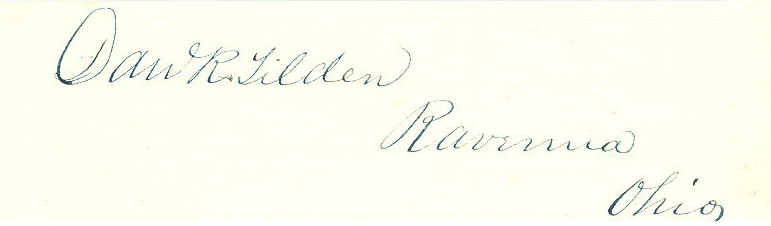 Danl R. Tilden
Ravenna
Ohio